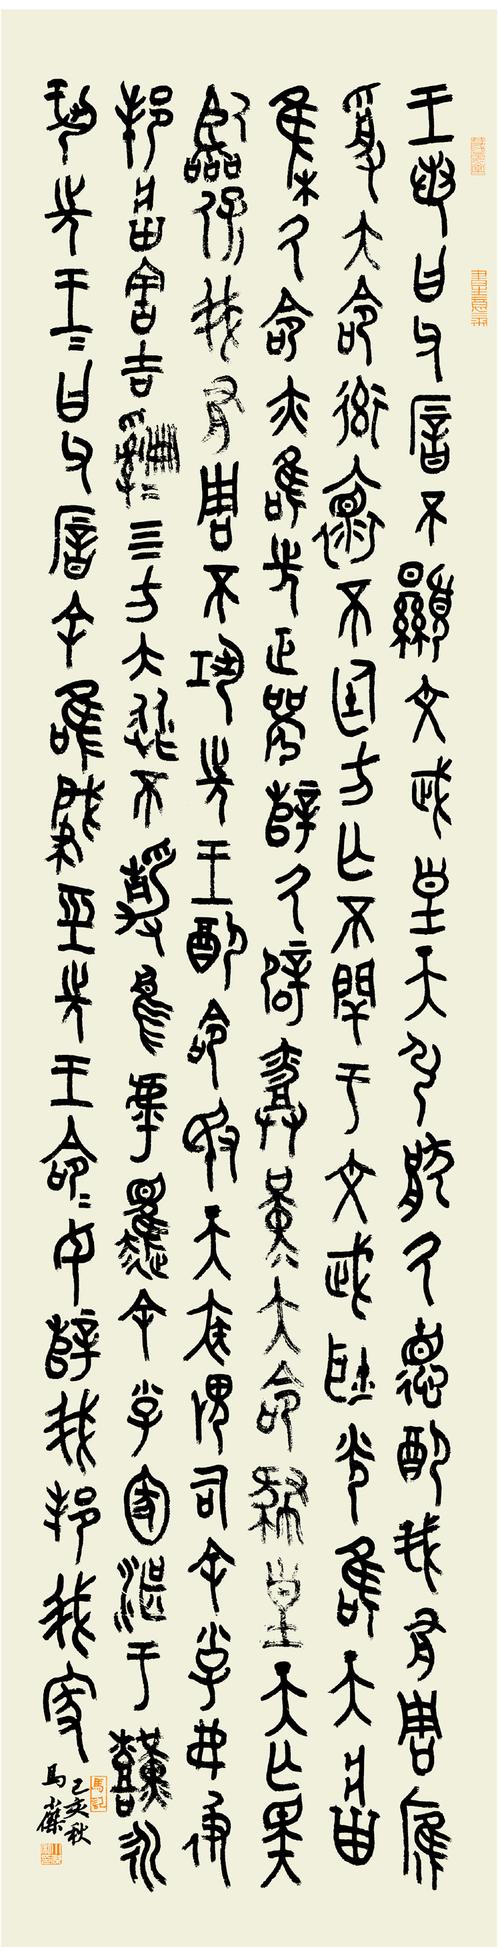 王若曰父厝不顯文武皇天弘猒厥德配我有周膺
受大命率懷不廷方亡不閈于文武耿光唯天將
集厥命亦唯先正襄辥厥辟𢍰堇大命肆皇天亡斁
臨保我有周不巩先王配命敃天疾畏司余小子弗彶
邦將害吉𤔲〻四方大縱不靜烏虖趯余小子圂湛于艱永
巩先王〻曰父厝余唯肇經先王命〻女辥我邦我家
己亥秋
馬